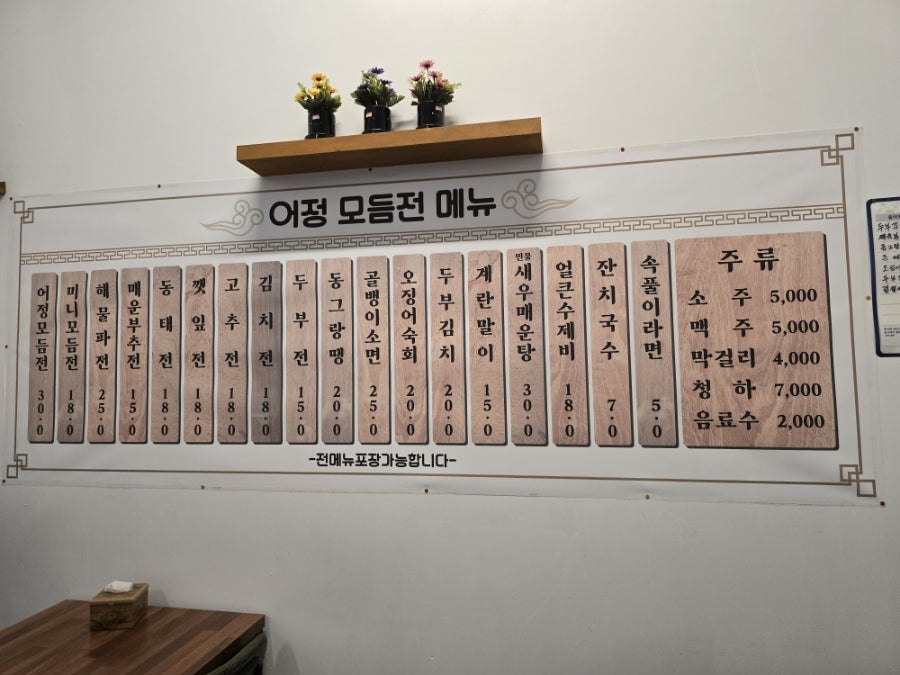 어정 모듬전 메뉴
어정모듬전 30.0
미니모듬전 18.0
해물파전 25.0
매운부추전 15.0
동태전 18.0
깻잎전 18.0
고추전 18.0
김치전 18.0
두부전 15.0
동그랑땡 20.0
골뱅이소면 25.0
오징어숙회 20.0
두부김치 20.0
계란말이 15.0
민물새우매운탕 30.0
얼큰수제비 18.0
잔치국수 7.0
속풀이라면 5.0
주류
소주 5,000
맥주 5,000
막걸리 4,000
청하 7,000
음료수 2,000
-전메뉴포장가능합니다-